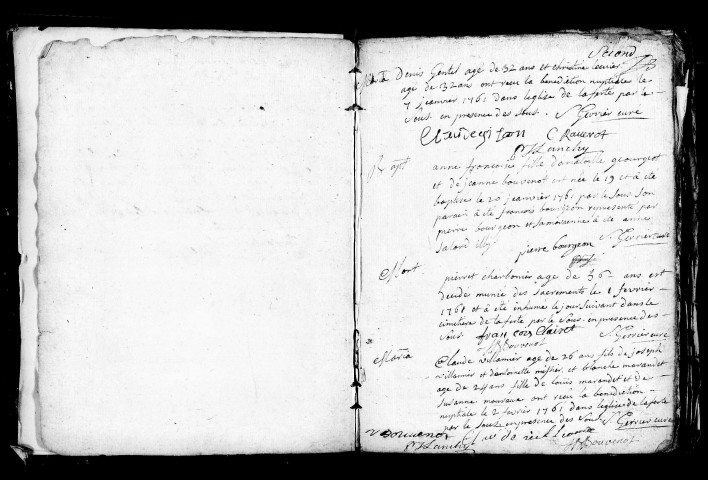 Second
Maria Denis Gentel agé de 32 ans et christine
agé de 32 ans ont recu la benediction nuptiale le
7 jeanvier 1761 dans leglise de la ferte par le
Sous. en presence des sous. curé
C Rauenot
Bapt anne francoise fille
et de jeanne bouvenot est née le 19 et a été
baptise le 20 jeanvier 1761 par le sous. Son
parain a été francois bourgeon representé par
pierre bourgeon et sa mareinne a été anne
pierre bourgeon curé
Mort pierret charbonier agé de 36 ans est
decidé munié des sacrements le 1 fevrier
1761 et a été inhumé le jour suivant dans le
cimetiere de la ferte par le sous. en presence des
sous. francois Clairet curé
Bouvenot
Maria Claude villamier agé de 26 ans fils de joseph
villamier et dantoinette et blanche marandet
age de 24 ans fille de louis marandet et de
Susanne ont recu la benediction
nuptiale le 2 fevrier 1761 dans leglise de la ferte
par le sous. en presence des sous. curé
Bouvenot